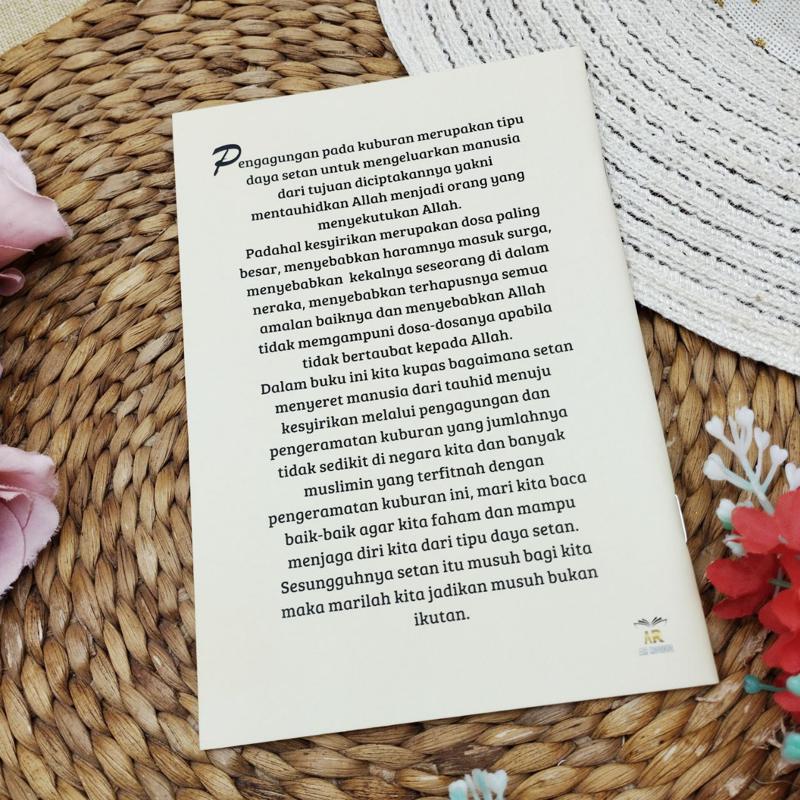 Pengagungan pada kuburan merupakan tipu
daya setan untuk mengeluarkan manusia
dari tujuan diciptakannya yakni
mentauhidkan Allah menjadi orang yang
menyekutukan Allah.
Padahal kesyirikan merupakan dosa paling
besar, menyebabkan haramnya masuk surga,
menyebabkan kekalnya seseorang di dalam
neraka, menyebabkan terhapusnya semua
amalan baiknya dan menyebabkan Allah
tidak memgampuni dosa-dosanya apabila
tidak bertaubat kepada Allah.
Dalam buku ini kita kupas bagaimana setan
menyeret manusia dari tauhid menuju
kesyirikan melalui pengagungan dan
pengeramatan kuburan yang jumlahnya
tidak sedikit di negara kita dan banyak
muslimin yang terfitnah dengan
pengeramatan kuburan ini, mari kita baca
baik-baik agar kita faham dan mampu
menjaga diri kita dari tipu daya setan.
Sesungguhnya setan itu musuh bagi kita
maka marilah kita jadikan musuh bukan
ikutan.
AR